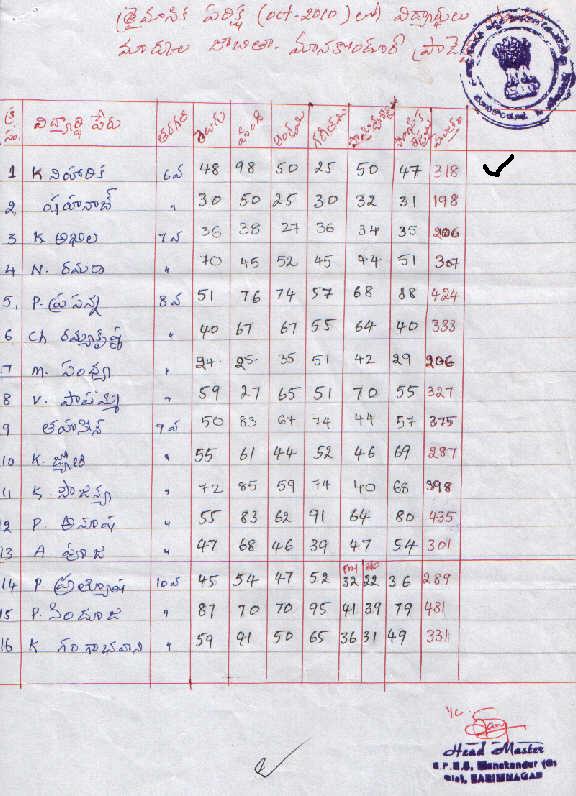 త్రైమాసిక పరీక్ష (oct-2010) లో విద్యార్థులు
మార్కుల జాబితా. మానకొండూర్
క్ర సం. విద్యార్థి పేరు తరగతి తెలుగు హిందీ ఇంగ్లీషు గణితము
1 K నిహారిక 6వ 48 98 50 25 50 47 318
2 షహనాజ్ " 30 50 25 30 32 31 198
3 K అఖిల 7వ 36 38 27 36 34 35 206
4 N. రమాదే " 70 45 52 45 44 51 307
5. P. ప్రసన్న 8వ 51 76 74 57 68 88 424
6 Ch " 40 67 67 55 64 40 333
7 M. సంధ్య " 24 25 35 51 42 29 206
8 V. పావని " 59 27 65 51 70 55 327
9 తహసీన్ 9వ 50 83 67 74 44 57 375
10 K. జ్యోతి " 55 61 44 52 46 69 287
11 K. సౌజన్య " 72 85 59 74 40 68 398
12 P. అనూష " 55 83 62 91 64 80 435
13 A పూజ " 47 68 46 39 47 54 301
14 P ప్రత్యూష 10వ 45 54 47 52 32 22 36 289
15 P. సింధూజ " 87 70 70 95 41 39 79 481
16 K గంగాభవాని " 59 91 50 65 36 31 49 331
Head Master
Manakondur
Dist. KARIMNAGAR